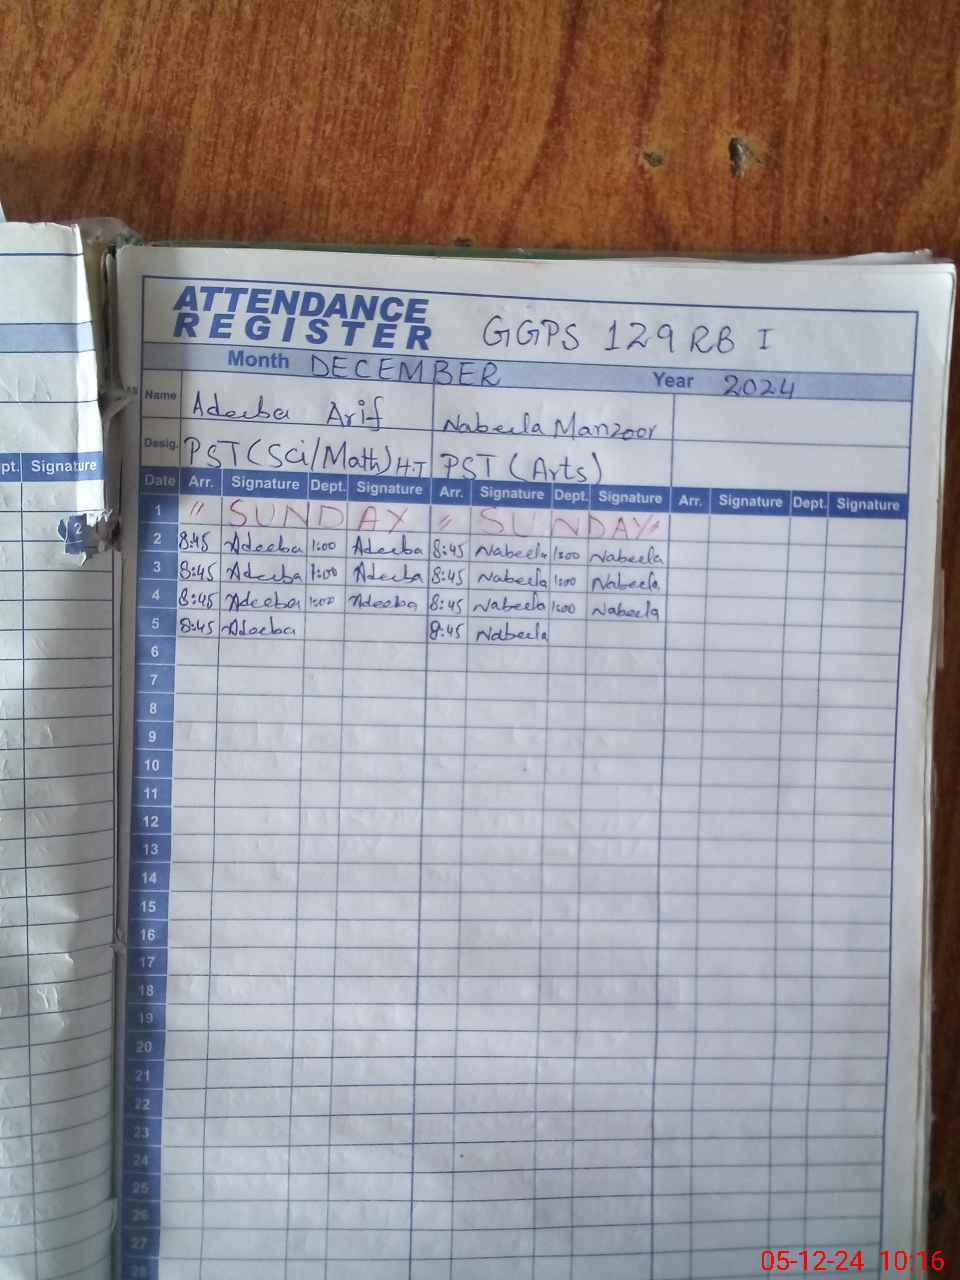 ATTENDANCE
REGISTER GGPS 129 RB I
Month DECEMBER Year 2024
Name Adeeba Arif Nabeela Manzoor
Desig. PST (Sci/Math) H.T PST (Arts)
pt. Signature
Date Arr. Signature Dept. Signature Arr. Signature Dept. Signature Arr. Signature Dept. Signature
1 " SUNDAY " SUNDAY "
2 8:45 Adeeba 1:00 Adeeba 8:45 Nabeela 1:00 Nabeela
3 8:45 Adeeba 1:00 Adeeba 8:45 Nabeela 1:00 Nabeela
4 8:45 Adeeba 1:00 Adeeba 8:45 Nabeela 1:00 Nabeela
5 8:45 Adeeba 8:45 Nabeela
6
7
8
9
10
11
12
13
14
15
16
17
18
19
20
21
22
23
24
25
26
27
28
2
05-12-24 10:16